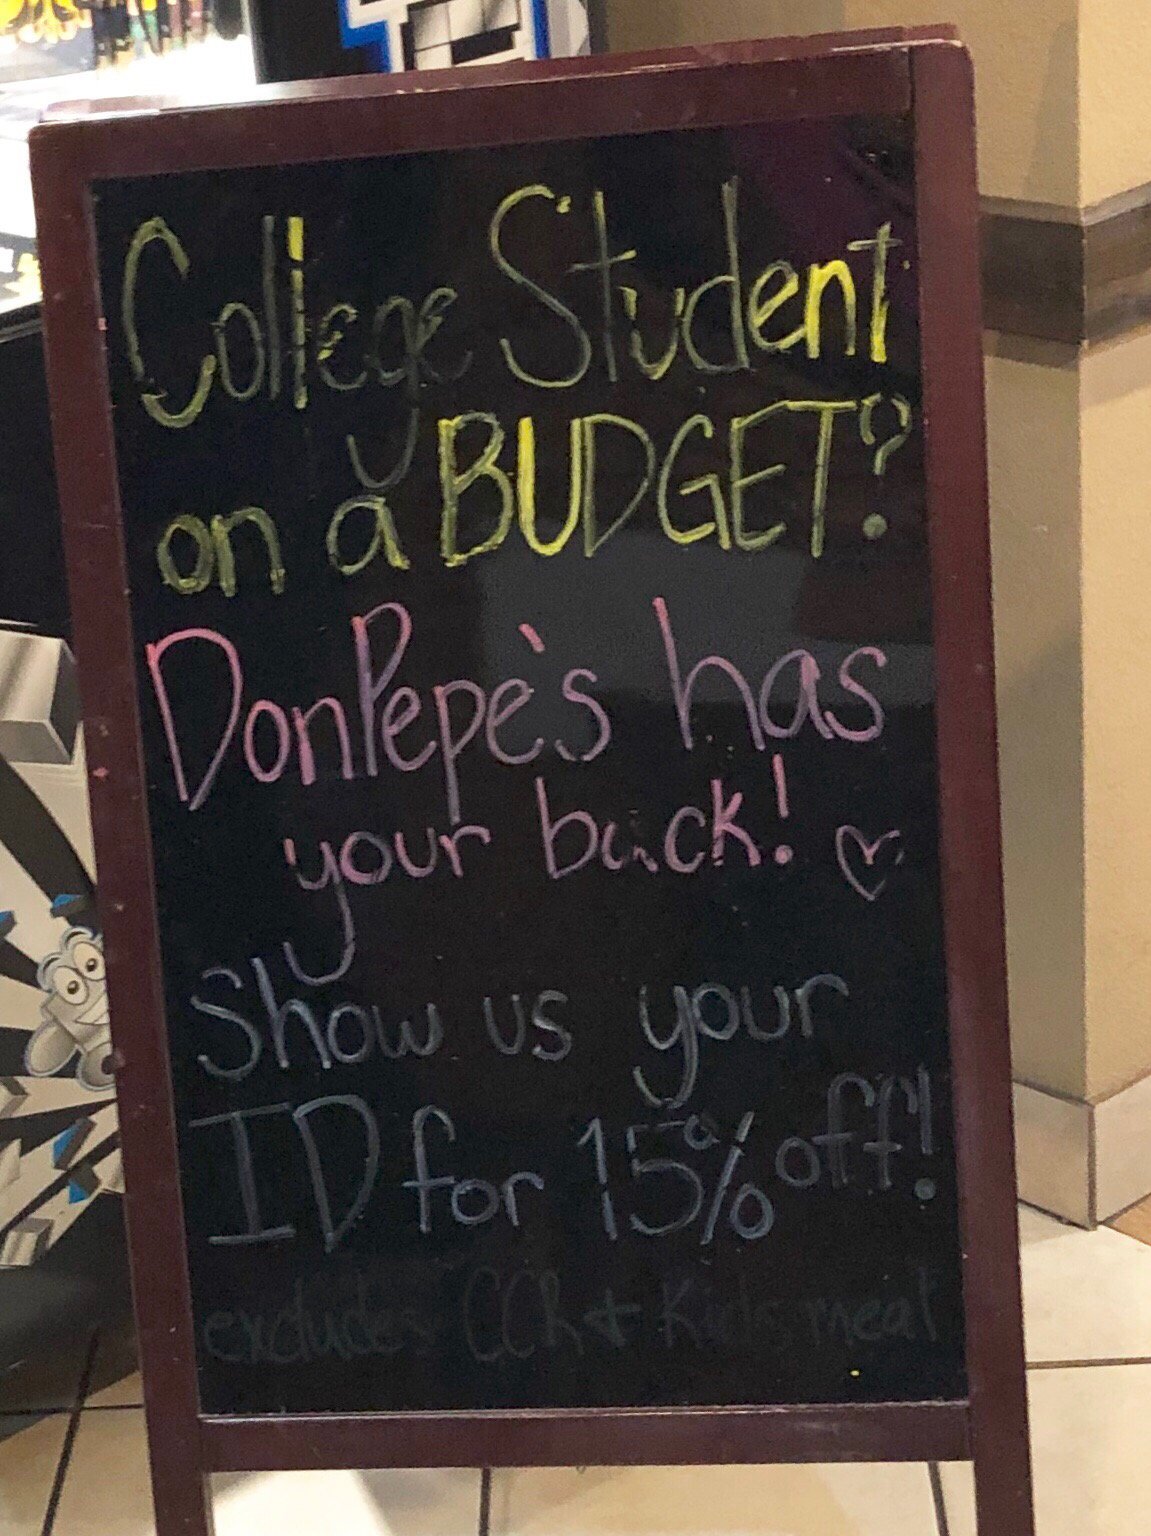 College Student
on a BUDGET?
DonPepe's has
your back!
Show us your
ID for 15% off!
excludes CCR + Kids meal